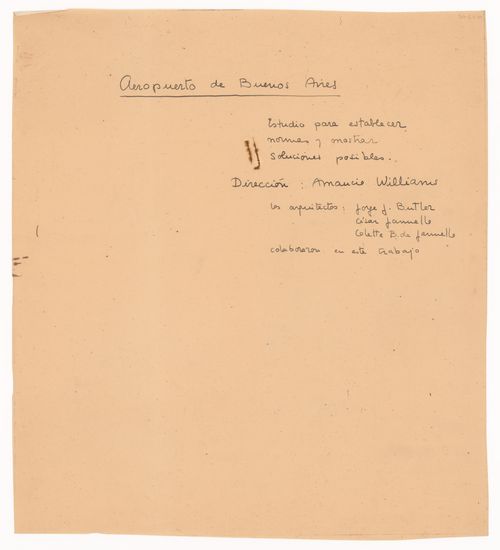 Aeropuerto de Buenos Aires
Estudio para establecer
normas y mostrar
soluciones posibles.
Dirección : Amancio Williams
los arquitectos : Jorge J. Butler
César Jannello
Colette B. de Jannello
colaboraron en este trabajo